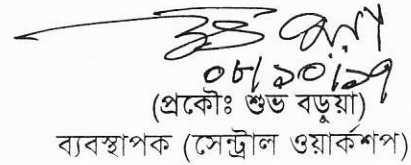 ০৮/১০/১৭
(প্রকৌঃ শুভ বড়ুয়া)
ব্যবস্থাপক (সেন্ট্রাল ওয়ার্কশপ)